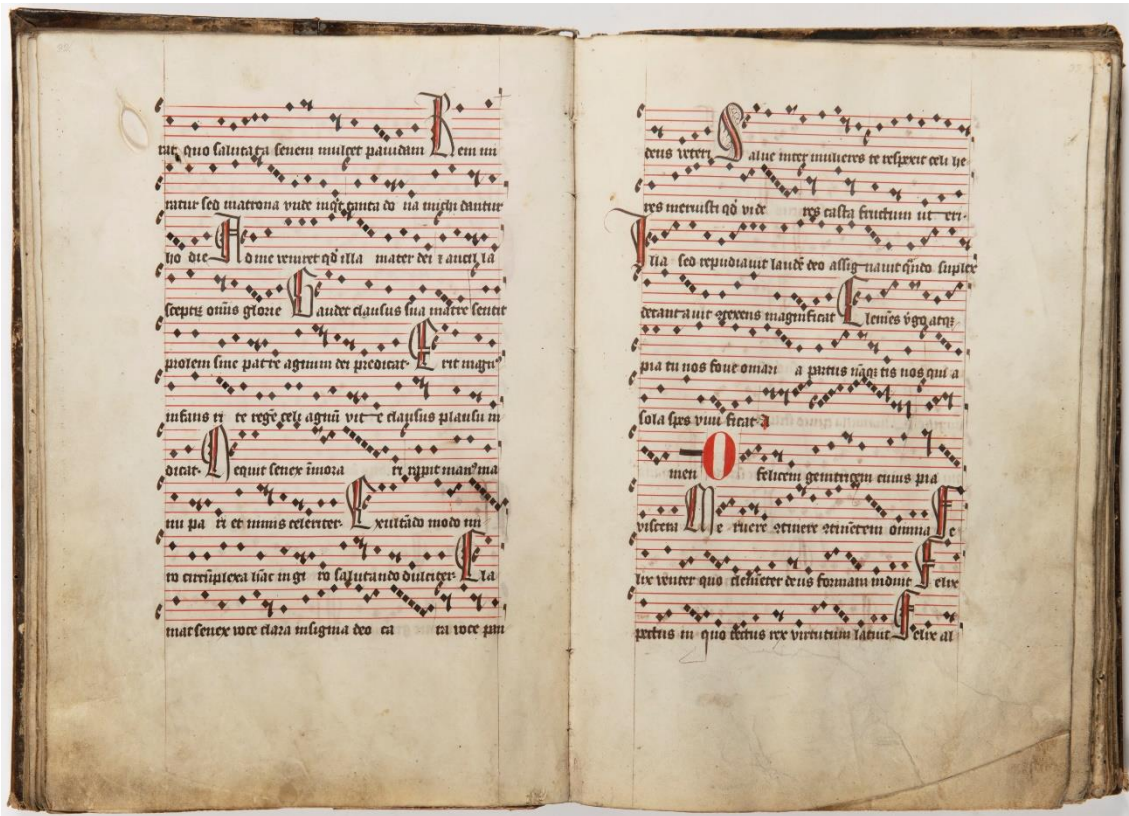 tat quo salutata senem mulcet pavidam Rem mi
ratur sed matrona vnde inqt tanta do na michi dantur
ho die Ad me veniret qd illa mater dei ⁊ ancil la
sceptrum omnis glorie Gaudet clausus sua matre sentit
prolem sine patre agnum dei predicat Erit magn
infans ti te rege celi agnu vit e clausus plausu in
dicat Nequit senex
nu pa ri et nimis celeriter Exultado modo mi
ro circuplexa hac in gi ro salutando dulciter Cla
mat senex voce clara insignia deo ca ra voce pan
deus veteri Salve inter mulieres te respexit celi he
res meruisti qd vide res casta fructum ut eri
Ilia sed repudiavit laude deo assignavit qudo suplex
decantavit ꝯtexens magnificat Clemes vgo atq
pia tu nos fove omari a partus naq tis nos qui a
sola spes vivi ficat a
men O felicem genitricem cuius pia
viscera Me ruere ꝯtinere ꝯtinetem omnia Fe
lix venter quo clemeter deus formam induit Felix
pectus in quo tectus rex virtutum latuit Felix al